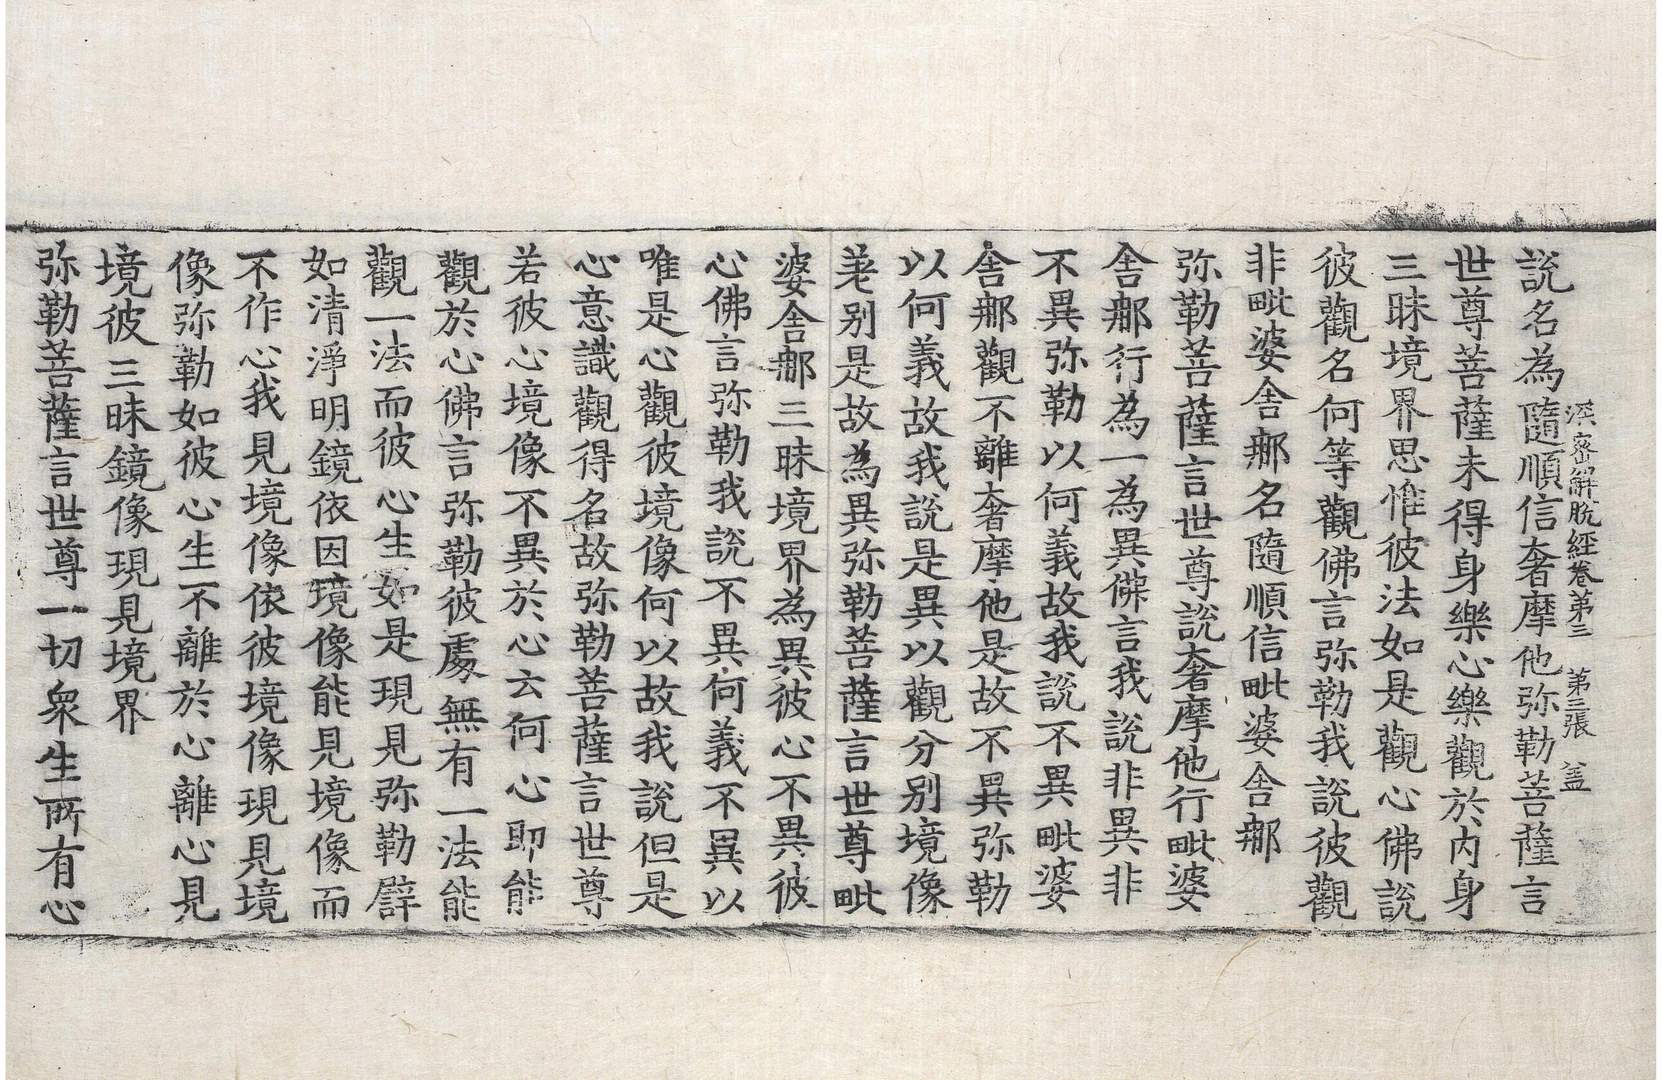 深密解脫經卷第三 第三張 盖
說名為隨順信奢摩他弥勒菩薩言
世尊菩薩未得身樂心樂觀於內身
三昧境界思惟彼法如是觀心佛說
彼觀名何等觀佛言弥勒我說彼觀
非毗婆舍那名隨順信毗婆舍那
弥勒菩薩言世尊說奢摩他行毗婆
舍那行為一為異佛言我說非異非
不異弥勒以何義故我說不異毗婆
舍那觀不離奢摩他是故不異弥勒
以何義故我說是異以觀分別境像
差別是故為異弥勒菩薩言世尊毗
婆舍那三昧境界為異彼心不異彼
心佛言弥勒我說不異何義不異以
唯是心觀彼境像何以故我說但是
心意識觀得名故弥勒菩薩言世尊
若彼心境像不異於心云何心即能
觀於心佛言弥勒彼處無有一法能
觀一法而彼心生如是現見弥勒譬
如清淨明鏡依因境像能見境像而
不作心我見境像依彼境像現見境
像弥勒如彼心生不離於心離心見
境彼三昧鏡像現見境界
弥勒菩薩言世尊一切衆生所有心